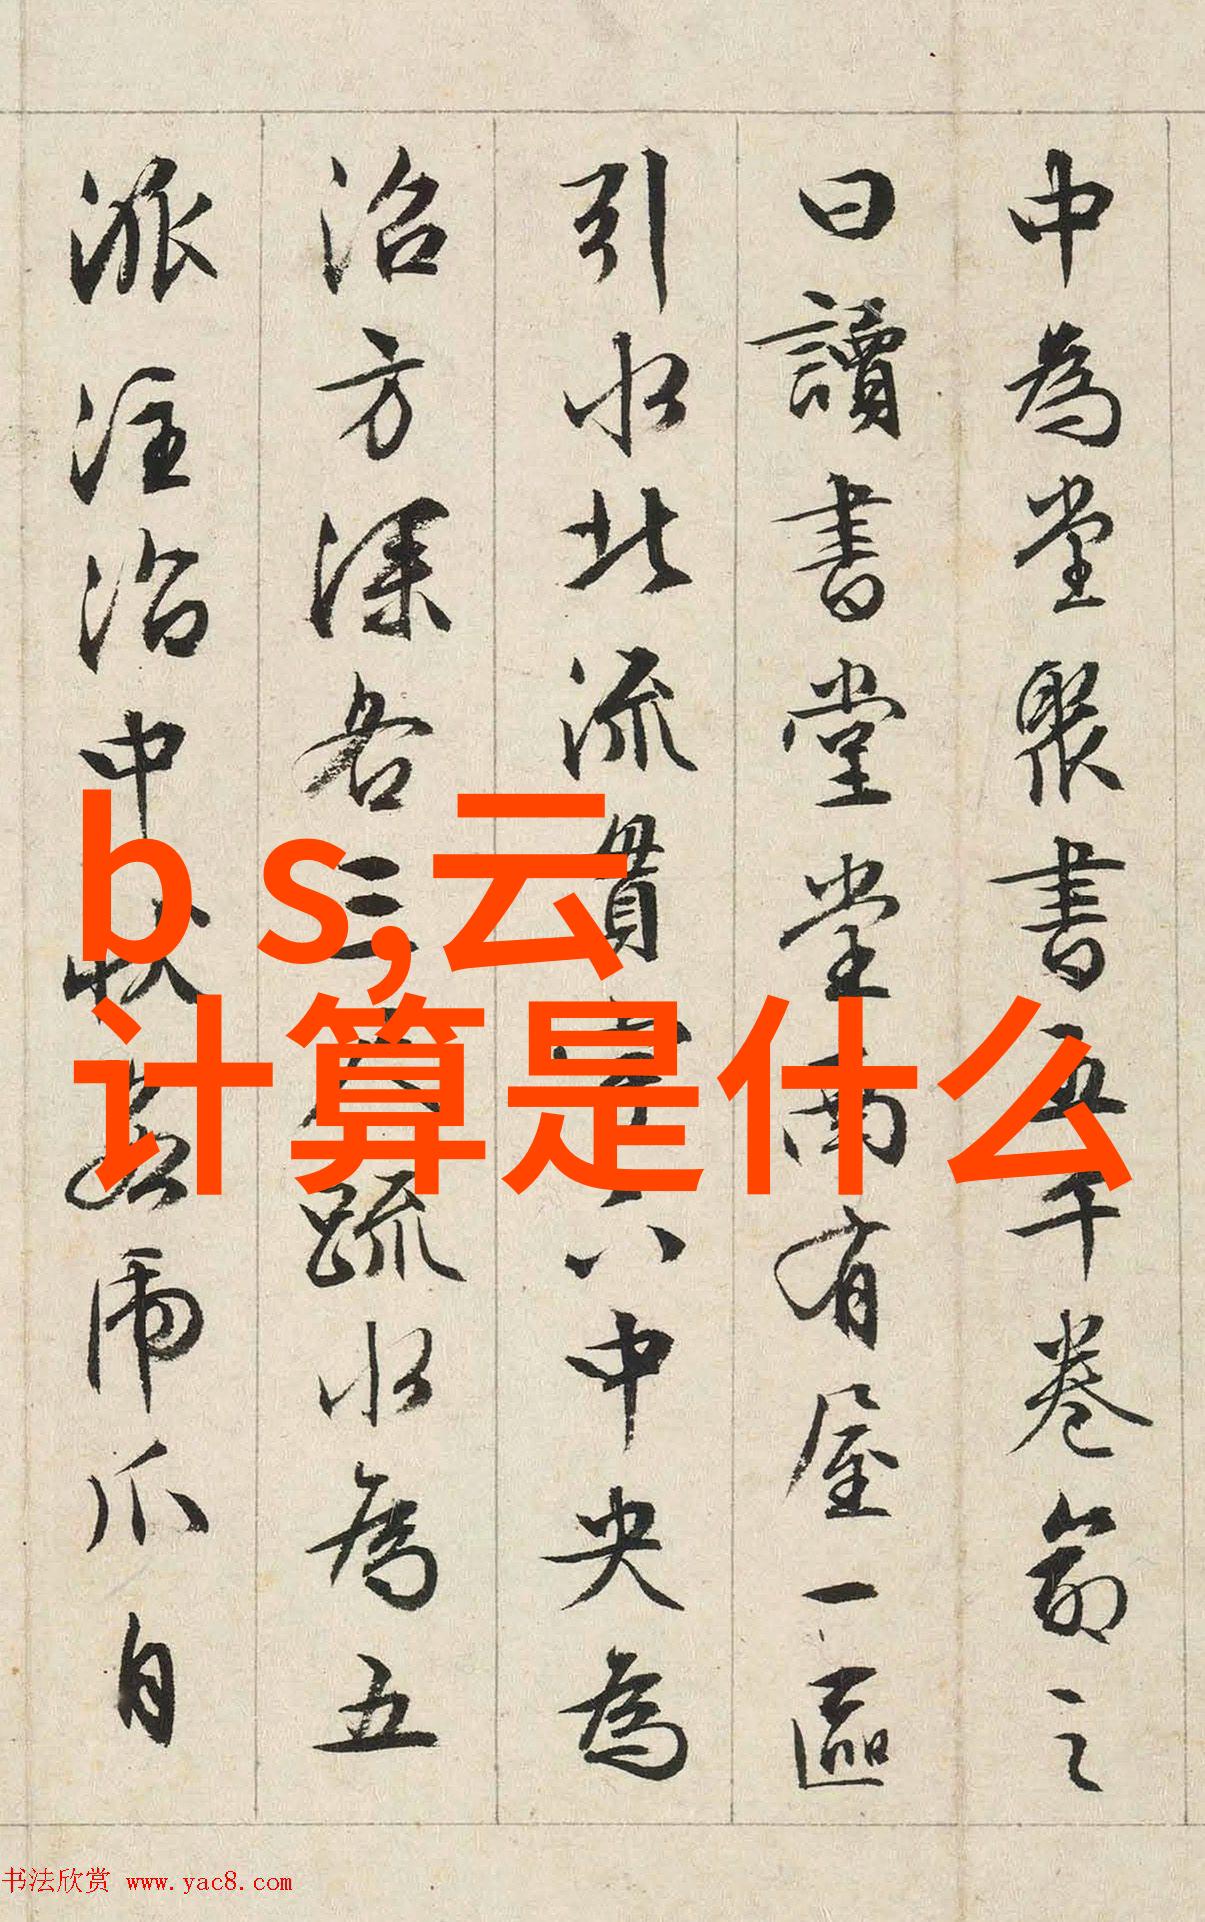 中為堂聚書五千卷命之
曰讀書堂堂南有屋一區
引水北流貫宇下中央為
沼方深各三尺疏水為五
派注沼中狀若虎爪自
b s,云
计算是什么
书法欣赏 www.yac8.com